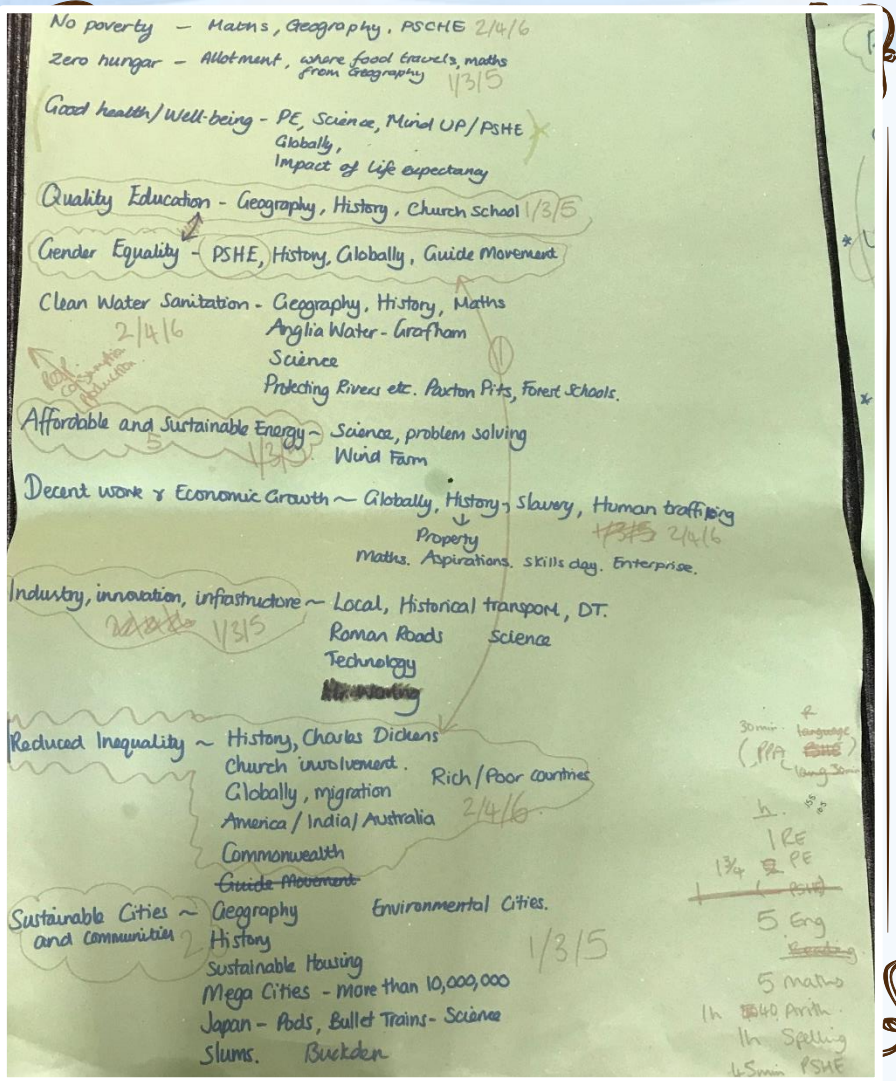 No poverty - Maths, Geography, PSCHE 2/4/6
Zero hungar - Allotment, where food travels, maths
from Geography 1/3/5
Good health/Well-being - PE, Science, Mind UP/PSHE
Globally,
Impact of Life expectancy
Quality Education - Geography, History, Church School 1/3/5
Gender Equality - PSHE, History, Globally, Guide Movement
Clean Water Sanitation - Geography, History, Maths
2/4/6 Anglia Water - Grafham
Science
Resp consumption production
Protecting Rivers etc. Paxton Pits, Forest Schools.
1
Affordable and Sustainable Energy ~ Science, problem solving
5 1/3/5 Wind Farm
Decent work & Economic Growth ~ Globally, History, Slavery, Human trafficking
1/3/5 2/4/6
Property
Maths. Aspirations. skills day. Enterprise.
Industry, innovation, infrastructore ~ Local, Historical transport, DT.
1/3/5 Roman Roads Science
Technology
Reduced Inequality ~ History, Charles Dickens
Church involvement.
Rich/Poor countries
Globally, migration
2/4/6
America/India/Australia
Commonwealth
Guide Movement
Sustainable Cities ~ Geography Environmental Cities.
and communities 2 History
1/3/5
Sustainable Housing
Mega Cities - more than 10,000,000
Japan - Pods, Bullet Trains - Science
Slums. Buckden
30 min language
(PPA PSHE)
30min
h
1 RE
1¾ PE
1 (PSHE)
5 Eng
Reading
5 maths
1h 40 Arith.
1h Spelling
45min PSHE